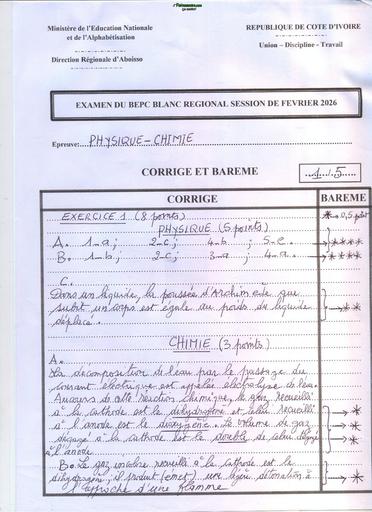 Fomesoutra.com
Ministère de l'Education Nationale
et de l'Alphabétisation
Direction Régionale d'Aboisso
REPUBLIQUE DE COTE D'IVOIRE
Union – Discipline - Travail
EXAMEN DU BEPC BLANC REGIONAL SESSION DE FEVRIER 2026
Epreuve: PHYSIQUE-CHIMIE
CORRIGE ET BAREME
1/5
CORRIGE
BAREME
EXERCICE 1 (8 points)
* → 0,5 point
PHYSIQUE (5 points)
A. 1-a; 2-c; 4-b; 5-c.
→ ****
B. 1-b, 2-c; 3-a; 4-a.
→ ****
C.
Dans un liquide, la poussée d'Archimède que
subit un corps est égale au poids de liquide
→ **
déplacé.
CHIMIE (3 points)
A.
La décomposition de l'eau par le passage du
courant électrique est appelée électrolyse de l'eau.
Au cours de cette réaction chimique, le gaz recueilli
à la cathode est le dihydrogène et celui recueilli
→ *
à l'anode est le dioxygène. Le volume de gaz
→ *
dégagé à la cathode est le double de celui dégagé
→ *
à l'anode
B. Le gaz incolore recueilli à la cathode est le
dihydrogène, il produit (émet) une légère détonation à
→ **
l'approche d'une flamme